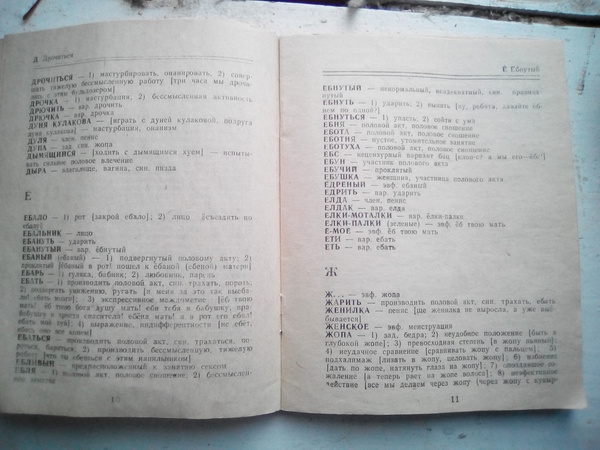 Д Дрочиться
ДРОЧИТЬСЯ — 1) мастурбировать, онанировать, 2) совер-
шать тяжелую бессмысленную работу [три часа мы дрочи-
лись с этим бульдозером]
ДРОЧКА — 1) мастурбация, 2) бессмысленная активность
ДРЮЧИТЬ — вар. дрочить
ДРЮЧКА — вар. дрочка
ДУНЯ КУЛАКОВА — [играть с дуней кулаковой, подруга
дуня кулакова] — мастурбация, онанизм
ДУЛЯ — член, пенис
ДУПА — зад, син. жопа
ДЫМЯЩИЙСЯ — [ходить с дымящимся хуем] — испыты-
вать сильное половое влечение
ДЫРА — влагалище, вагина, син. пизда
Е
ЕБАЛО — 1) рот [закрой ебало]; 2) лицо [съездить по
ебалу]
ЕБАЛЬНИК — лицо
ЕБАНУТЬ — ударить
ЕБАНУТЫЙ — вар. ёбнутый
ЕБАНЫЙ (ёбаный) — 1) подвергнутый половому акту; 2)
проклятый [ёбаный в рот! пошел к ёбаной (ебеной) матери]
ЕБАРЬ — 1) гуляка, бабник; 2) любовник, парень
ЕБАТЬ — 1) производить половой акт, син. трахать, пороть,
2) подвергать унижению, ругать [и меня за это так выеб-
ЕБАТЬСЯ — 1) производить половой акт, син. трахаться, по-
роться, бараться, 2) производить бессмысленную, тяжелую
работу [что ты ебешься с этим напильником]
ЕБЛИВЫЙ — предрасположенный к занятию сексом
ЕБЛЯ — 1) половой акт, половое сношение, 2) бессмыслен-
Ё Ёбнутый
ЕБНУТЫЙ — ненормальный, неадекватный, син. прибизд-
нутый
ЕБНУТЬ — 1) ударить; 2) выпить [ну, ребята, давайте ёб-
нем по одной]
ЕБНУТЬСЯ — 1) упасть, 2) сойти с ума
ЕБНЯ — половой акт, половое сношение
ЕБОТА — половой акт, половое сношение
ЕБОТНЯ — пустое, утомительное занятие
ЕБОТУХА — половой акт, половое сношение
ЕБУН — участник полового акта
ЕБУЧИЙ — проклятый
ЕБУШКА — женщина, участница полового акта
ЕДРЕНЫЙ — эвф. ебаный
ЕДРИТЬ — вар. ударить
ЕЛДА — член, пенис
ЕЛДАК — вар. елда
ЕЛКИ-МОТАЛКИ — вар. ёлки-палки
ЕЛКИ-ПАЛКИ (зеленые) — эвф. ёб твою мать
Е-МОЕ — эвф. ёб твою мать
ЕТИ — вар. ебать
ЕТЬ — вар. ебать
Ж
Ж... — эвф. жопа
ЖАРИТЬ — производить половой акт, син. трахать, ебать
ЖЕНИЛКА — пенис [ще женилка не выросла, а уже выё-
бывается]
ЖЕНСКОЕ — эвф. менструация
ЖОПА — 1) зад, бедра; 2) неудобное положение [быть в
глубокой жопе]; 3) превосходная степень [в жопу пьяный];
4) неудачное сравнение [сравнивать жопу с пальцем]; 5)
подхалимаж [лизать в жопу, целовать жопу]; 6) избиение
[дать по жопе, натянуть глаз на жопу]; 7) запоздалое по-
жаление [а теперь рвет на жопе волоса]; 8) неэффективное
действие [все мы делаем через жопу (через жопу с кувыр-
11